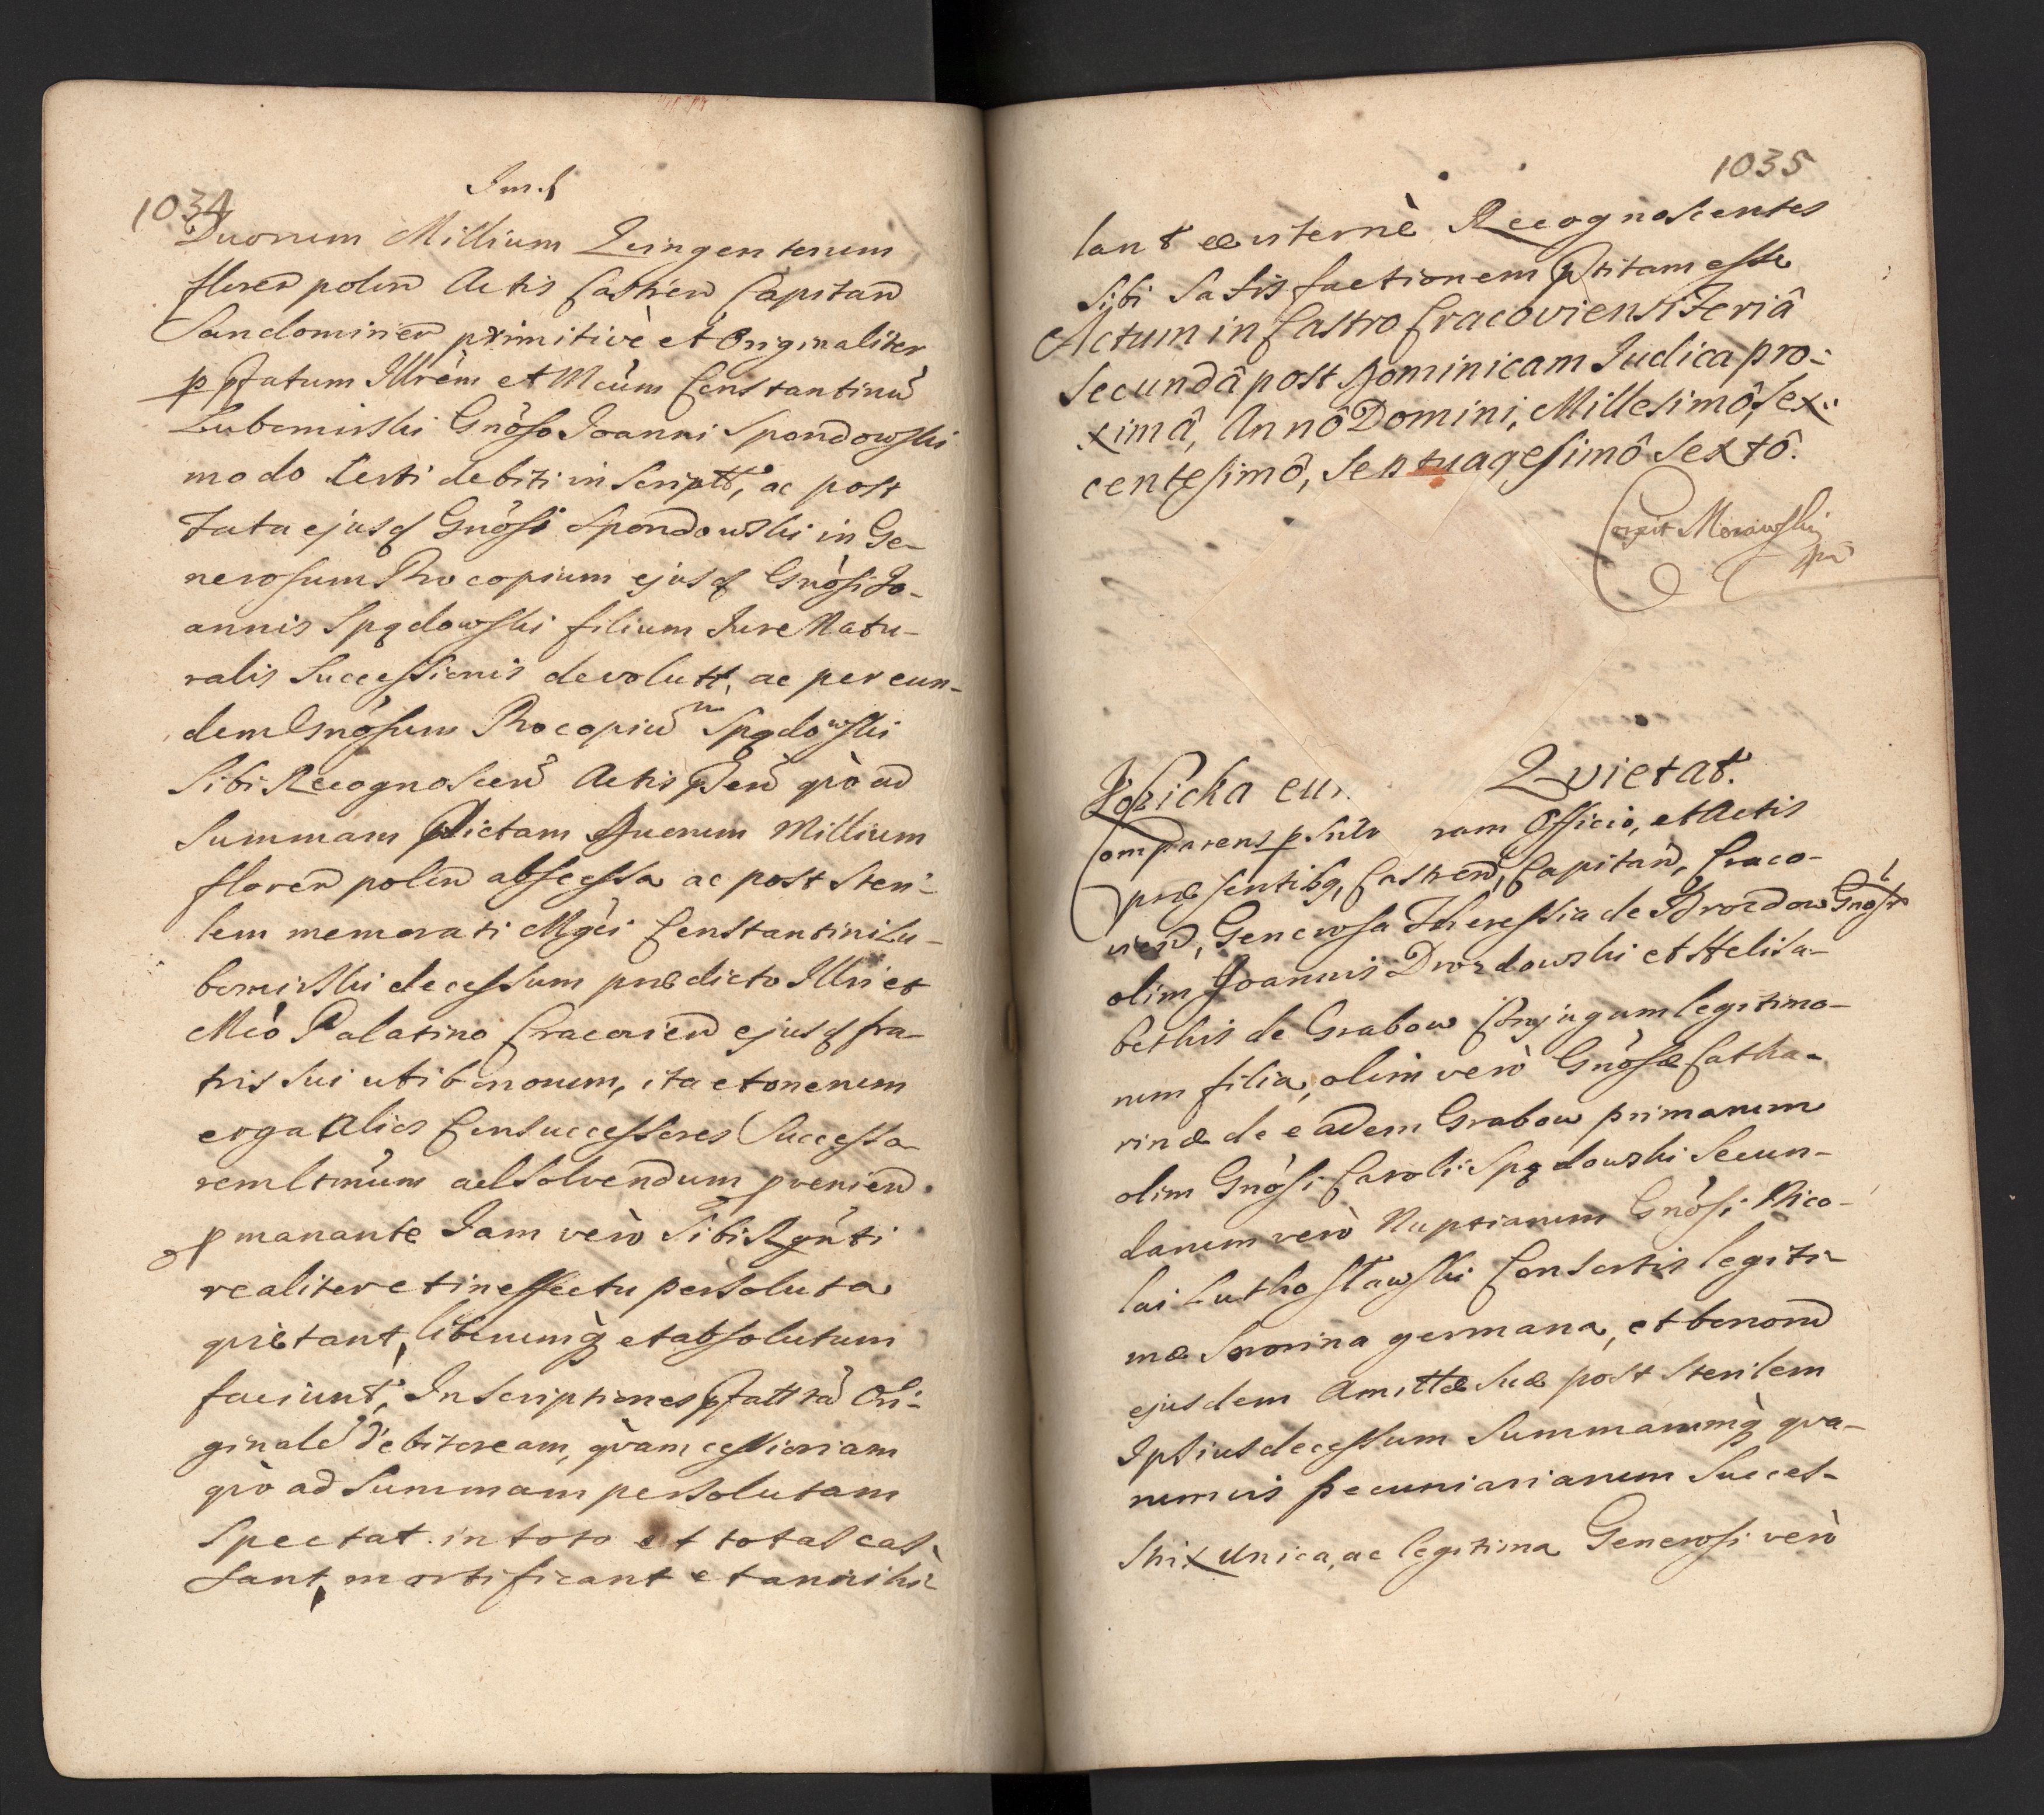 1034
Duorum Millium Quingentorum
floren polon Actis Castren Capitan
Sandomirien primitive et Originaliter
p pfatum Illrem et Mcum Constantinu
Lubomirski Gnoso Joanni Spondowski
modo certi debiti inscriptt, ac post
fata ejusd Gnosi Spondowski in Ge-
nerosum Procopium ejusd Gnosi Jo-
annis Spądowski filium Jure Natu-
ralis Successionis devolutt, ac per eun-
dem Gnosum Procopiu Spądowski
Sibi Recognoscen Actis pñ qvo ad
Summam pdictam Duorum Millium
floren polon abscessa ac post steri-
lem memorati Mgci Constantini Lu-
bomirski decessum prædicto Illri et
Mco Palatino Cracovien ejusd fra-
tris sui uti bonorum, ita et onerum
erga Alios Consuccessores Successo-
rem ltmum ad solvendum pvenien
pmanante Jam vero Sibi Rgnti
realiter et in effectu persoluta
qvietant, liberumq et absolutum
faciunt, Inscriptiones pfatt ta Ori-
ginale debitoream, qvam cessioriam
qvo ad Summam persolutam
Spectat in toto et total cas-
sant, mortificant et annihi-
1035
lant æviterne Recognoscentes
Sibi Satisfactionem pstitam esse
Actum in Castro Cracoviensi Feriâ
Secundâ post Dominicam Judica pro-
ximâ, Annô Domini, Millesimô, Sex-
centesimô, Septuagesimô Sextô.
Corexit Morawski
mp
Łosicka cu. Qvietat.
Comparens p ram Officio, et Actis
præsentibq, Castren, Capitan, Craco-
vien, Generosa Theressia de Drozdow Gnosi
olim Joannis Drozdowski et Helisa-
bethis de Grabow Conjugum legitimo-
rum filia, olim vero Gnosæ Catha-
rinæ de eadem Grabow primarum
olim Gnosi Caroli Spądowski Secun-
darum vero Nuptiarum Gnosi Nico-
lai Luthosławski Consortis legiti-
mæ Sororina germana, et bonorū
ejusdem Amittæ suæ post sterilem
Ipsius decessum Summarumq qva-
rumvis pecuniariarum Succes-
trix Unica, ac legitima Generosi vero